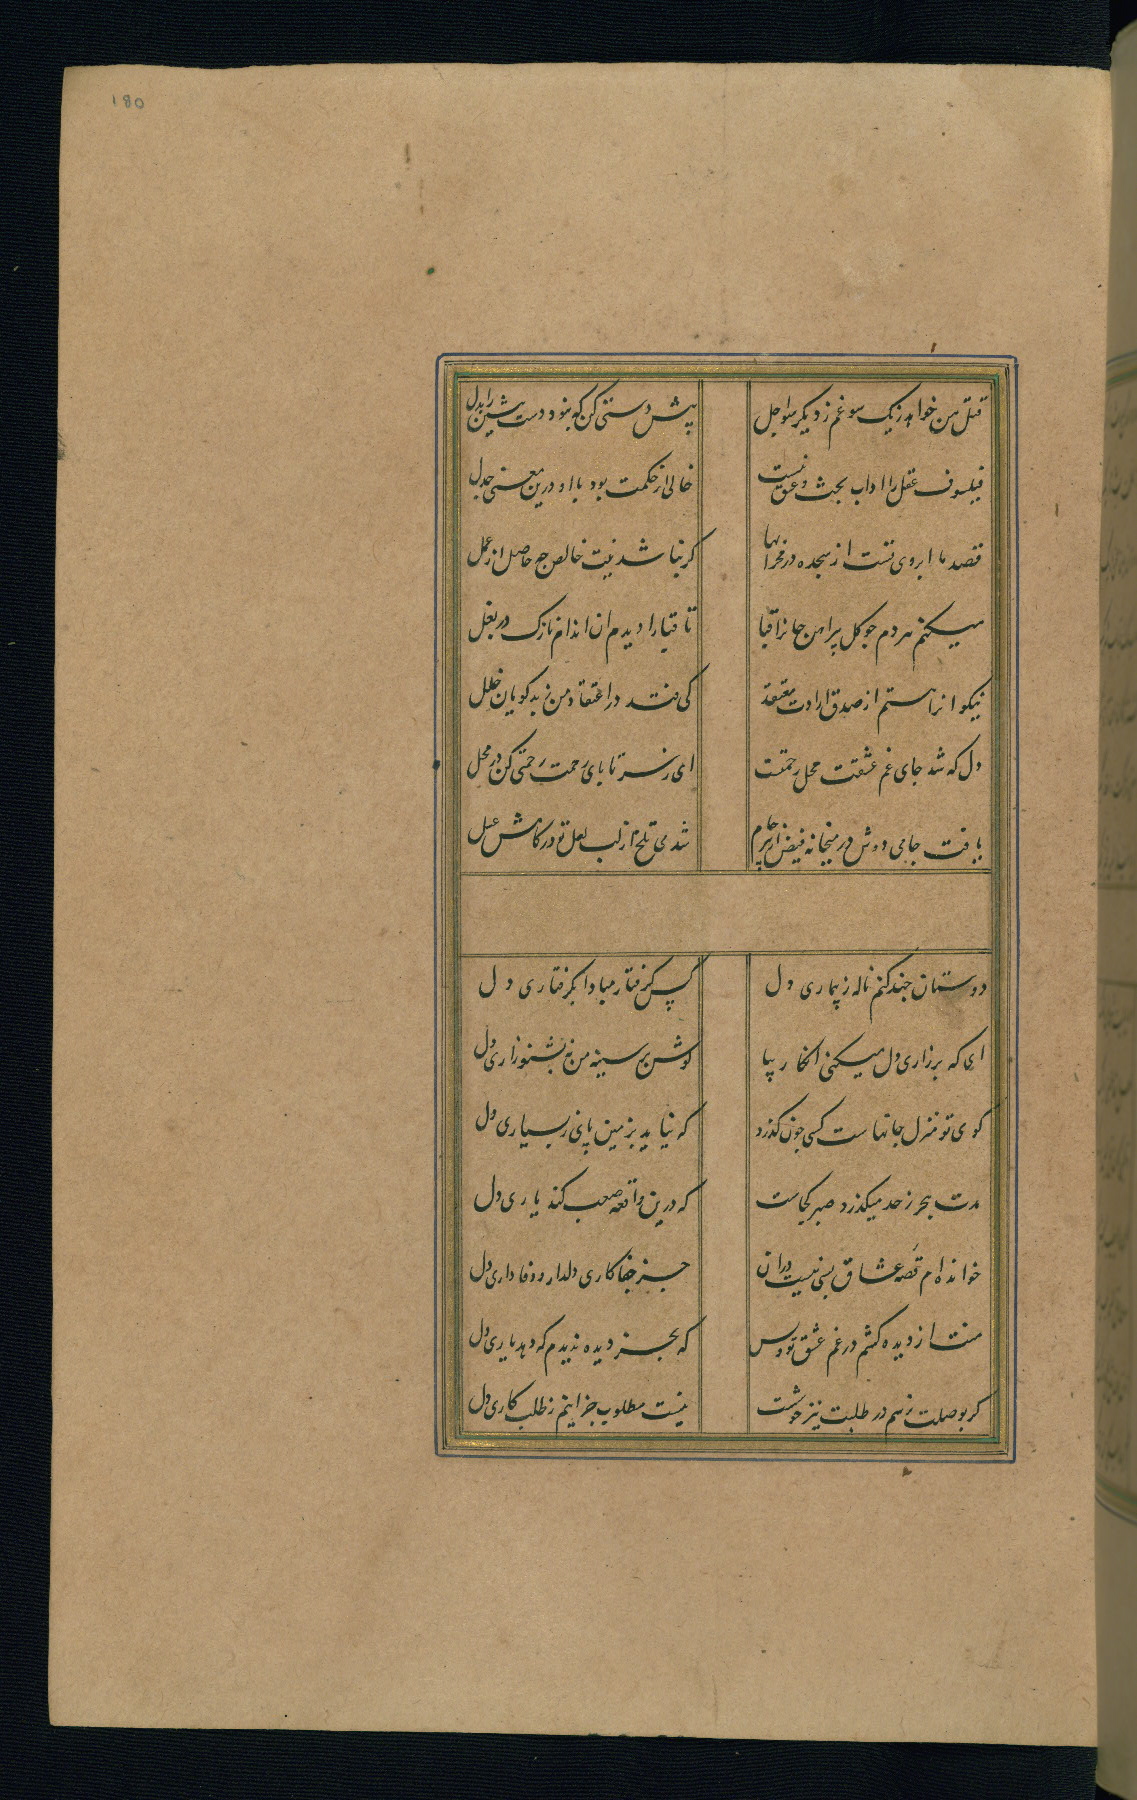 180
قتل من خواهد ز یک سو غم ز دیگر سو اجل
پیش دستی کن که نبود دست پیشین را بدل
فیلسوف عقل را اداب بحث عشق نیست
خالی از حکمت بود با او درین معنی جدل
قصد ما ابروی تست از سجده در محرابها
کر نباشد نیت خالص چه حاصل از عمل
میکنم هر دم جو کل پیراهن جانرا قبا
تا قبا را دیدم ان اندام نازک در بغل
نیکوانرا هستم از صدق ارادت معتقد
کی فتد در اعتقاد من ز بدکویان خلل
دل که شد جای غم عشقت محل رحمتست
ای ز سر تا پای رحمت رحمتی کن در محل
یافت جامی دوش در میخانه فیض از جام
شد می تلخ از لب لعل تو در کامش عسل
دوستان جند کنم ناله ز بیماری دل
کس کرفتار مبادا بکرفتاری دل
ای که بر زاری دل میکنی انکار بیا
کوش بر سینه من نه بشنو زاری دل
کوی تو منزل جانهاست کسی جون کذرد
که نیاید بزمین پای ز بسیاری دل
مدت هجر ز حد میکذرد صبر کجاست
که درین واقعه صعب کند یاری دل
خوانده ام قصه عشاق بسی نیست دران
جز جفاکاری دلدار و وفاداری دل
منت از دیده کشم در غم عشق تو و بس
که بجز دیده ندیدم که دهد یاری دل
کر بوصلت نرسم در طلبت نیز خوشست
نیست مطلوب جز اینم ز طلب کاری دل